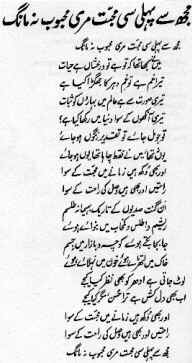 مجھ سے پہلی سی محبت مری محبوب نہ مانگ
مجھ سے پہلی سی محبت مری محبوب نہ مانگ
میں نے سمجھا تھا کہ تو ہے تو درخشاں ہے حیات
تیرا غم ہے تو غم دہر کا جھگڑا کیا ہے
تیری صورت سے ہے عالم میں بہاروں کو ثبات
تیری آنکھوں کے سوا دنیا میں رکھا کیا ہے؟
تو جو مل جائے تو تقدیر نگوں ہو جائے
یوں نہ تھا، میں نے فقط چاہا تھا یوں ہو جائے
اور بھی دکھ ہیں زمانے میں محبت کے سوا
راحتیں اور بھی ہیں وصل کی راحت کے سوا
ان گنت صدیوں کے تاریک بہیمانہ طلسم
ریشم و اطلس و کمخاب میں بنوائے ہوئے
جا بجا بکتے ہوئے کوچہ و بازار میں جسم
خاک میں لتھڑے ہوئے خون میں نہلائے ہوئے
لوٹ جاتی ہے ادھر کو بھی نظر کیا کیجے
اب بھی دل کش ہے ترا حسن مگر کیا کیجے
اور بھی دکھ ہیں زمانے میں محبت کے سوا
راحتیں اور بھی ہیں وصل کی راحت کے سوا
مجھ سے پہلی سی محبت مری محبوب نہ مانگ